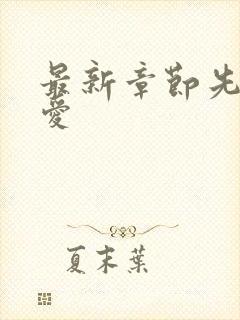 最新章節先
愛
夏末葉